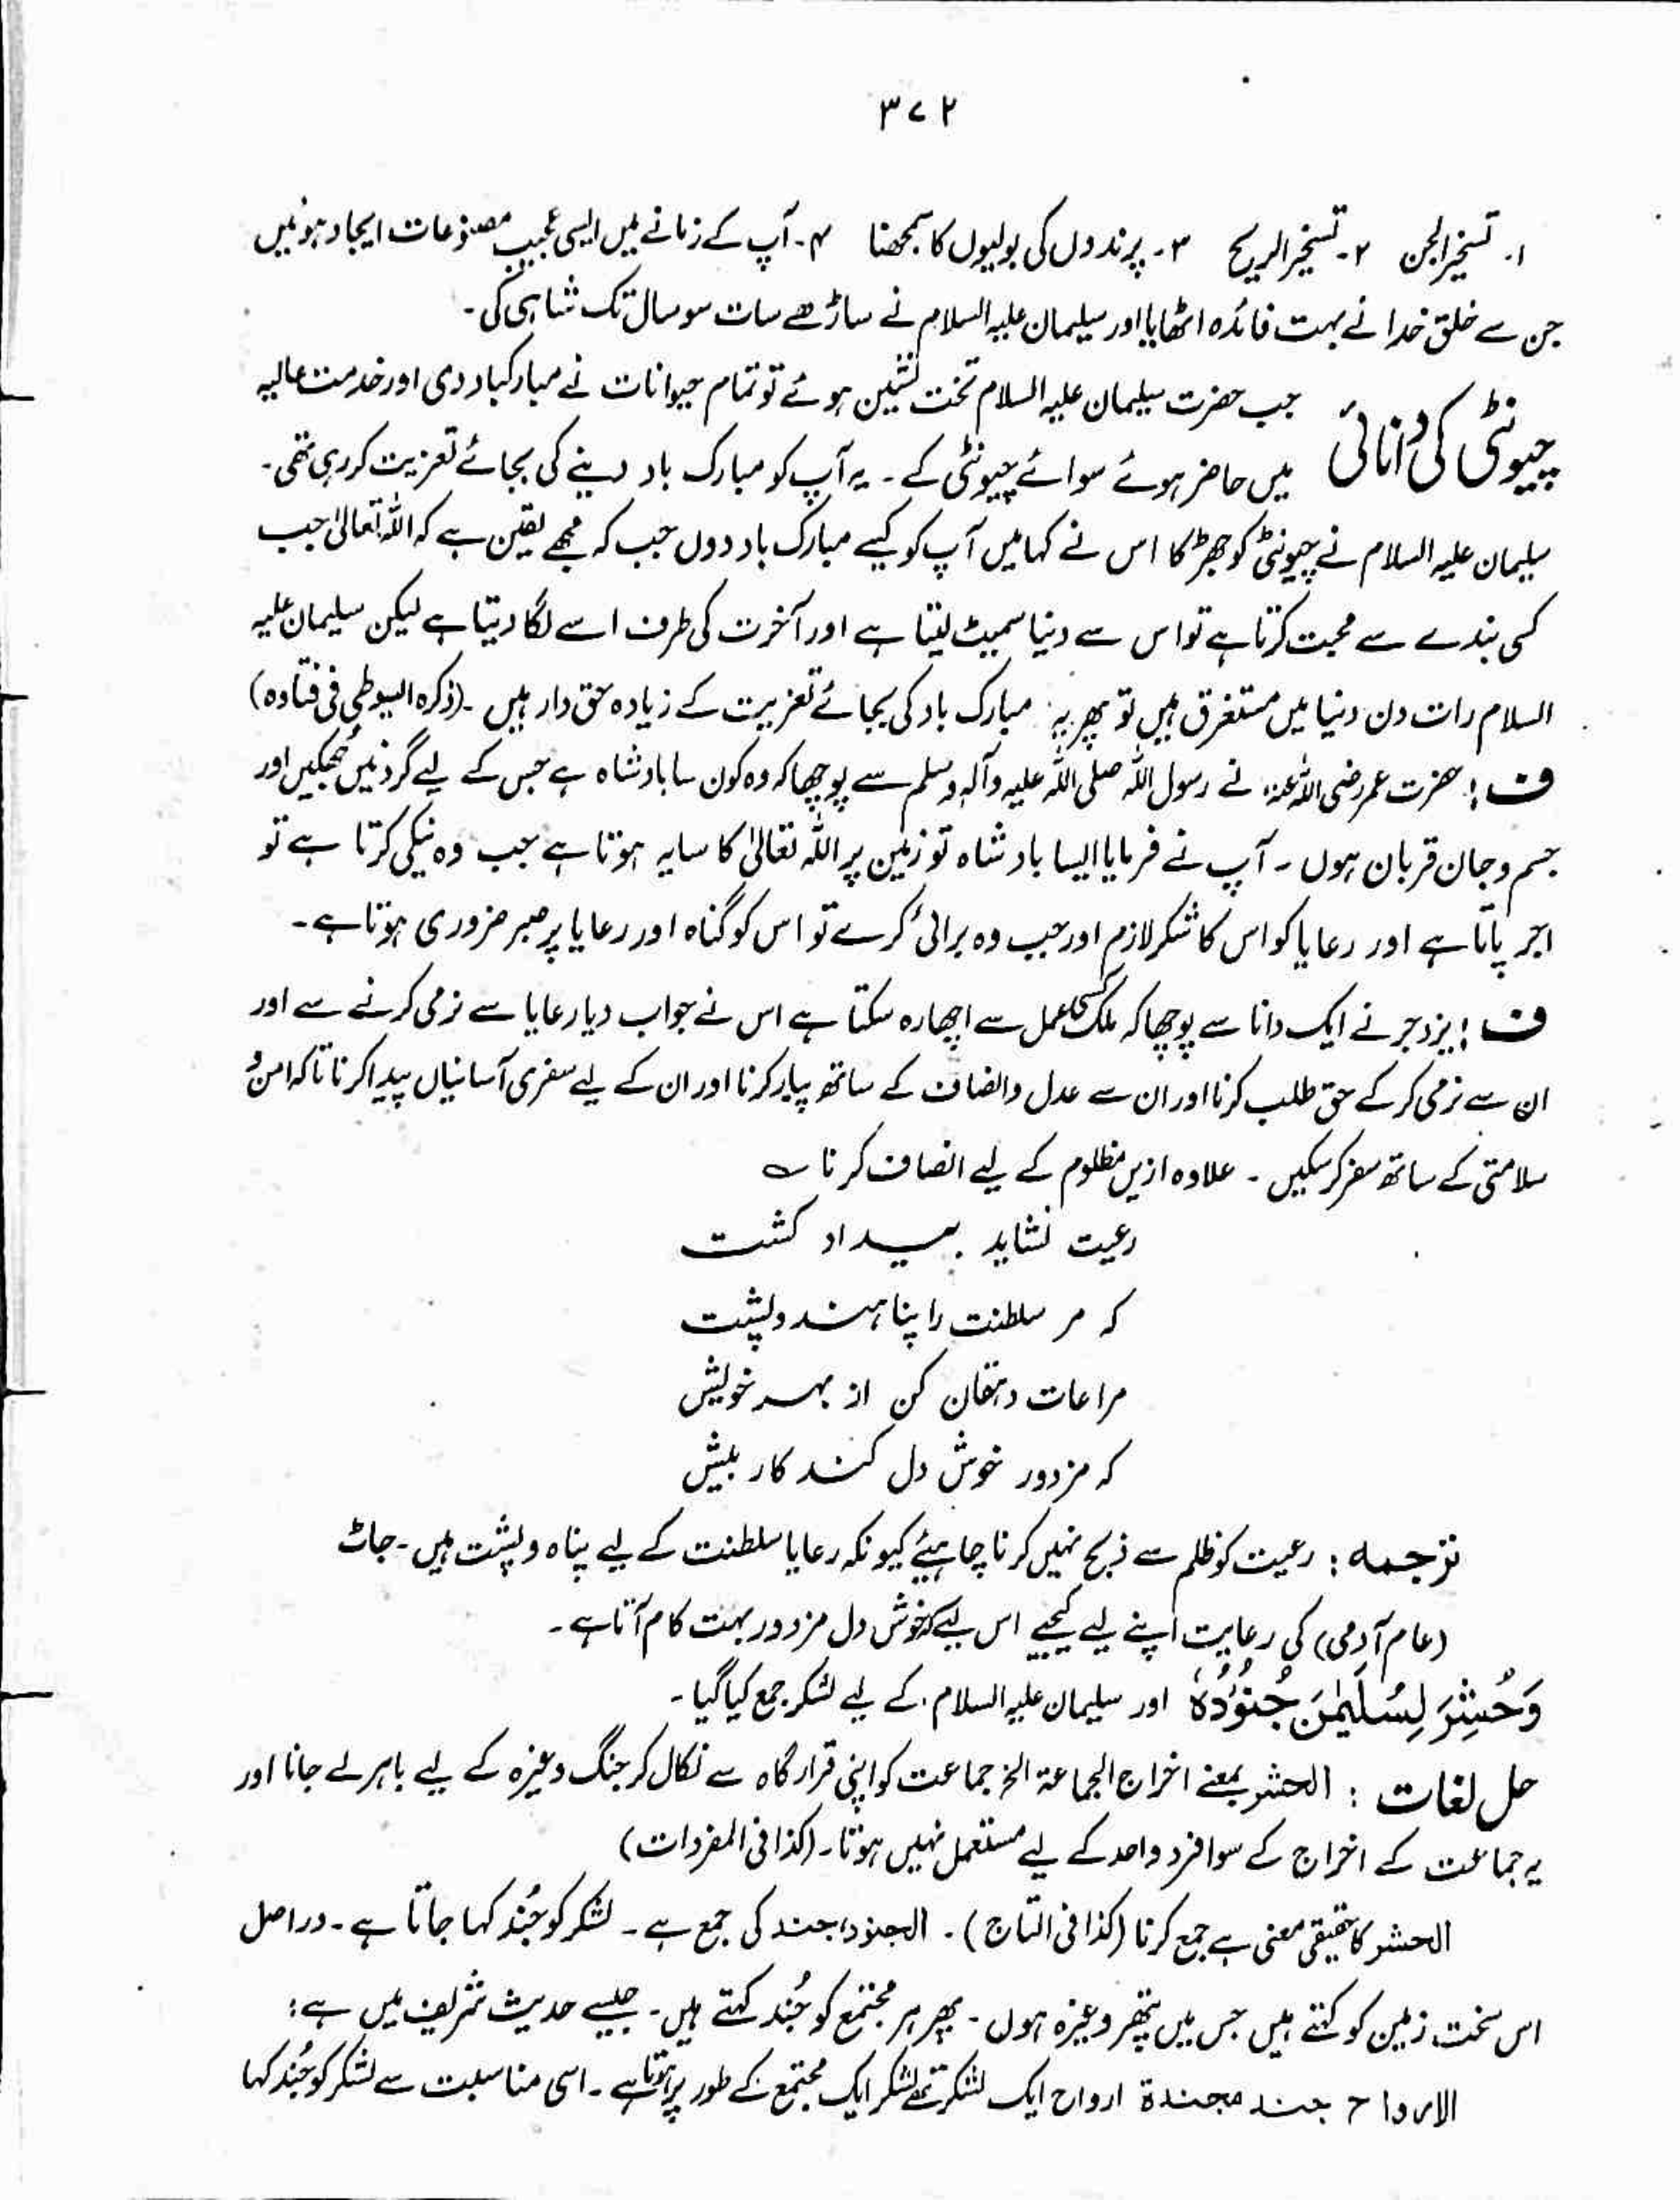 ۳۷۲
۱۔ تسخیر الجن ۲۔ تسخیر الریح ۳۔ پرندوں کی بولیوں کا سمجھنا ۴۔ آپ کے زمانے میں ایسی عجیب مصنوعات ایجاد ہوئیں
جن سے خلق خدا نے بہت فائدہ اٹھایا اور سلیمان علیہ السلام نے ساڑھے سات سو سال تک شاہی کی۔
چیونٹی کی دانائی جب حضرت سلیمان علیہ السلام تخت نشین ہوئے تو تمام حیوانات نے مبارکباد دی اور خدمت عالیہ
میں حاضر ہوئے سوائے چیونٹی کے۔ یہ آپ کو مبارک باد دینے کی بجائے تعزیت کر رہی تھی۔
سلیمان علیہ السلام نے چیونٹی کو جھڑکا اس نے کہا میں آپ کو کیسے مبارک باد دوں جب کہ مجھے یقین ہے کہ اللہ تعالیٰ جب
کسی بندے سے محبت کرتا ہے تو اس سے دنیا سمیٹ لیتا ہے اور آخرت کی طرف اسے لگا دیتا ہے لیکن سلیمان علیہ
السلام رات دن دنیا میں مستغرق ہیں تو پھر یہ مبارک باد کی بجائے تعزیت کے زیادہ حق دار ہیں۔ (ذکرہ السیوطی فی فتاوہ)
ف : حضرت عمر رضی اللہ عنہ نے رسول اللہ صلی اللہ علیہ وآلہ وسلم سے پوچھا کہ وہ کون سا بادشاہ ہے جس کے لیے گردنیں جھکیں اور
جسم و جان قربان ہوں۔ آپ نے فرمایا ایسا بادشاہ تو زمین پر اللہ تعالیٰ کا سایہ ہوتا ہے جب وہ نیکی کرتا ہے تو
اجر پاتا ہے اور رعایا کو اس کا شکر لازم اور جب وہ برائی کرے تو اس کو گناہ اور رعایا پر صبر ضروری ہوتا ہے۔
ف : یزدجر نے ایک دانا سے پوچھا کہ ملک کس عمل سے اچھا رہ سکتا ہے اس نے جواب دیا رعایا سے نرمی کرنے سے اور
ان سے نرمی کر کے حق طلب کرنا اور ان سے عدل و انصاف کے ساتھ پیار کرنا اور ان کے لیے سفری آسانیاں پیدا کرنا تاکہ امن و
سلامتی کے ساتھ سفر کر سکیں۔ علاوہ ازیں مظلوم کے لیے انصاف کرنا ؎
رعیت نشاید بہ بیداد کشت
کہ مر سلطنت را پناہند و پشت
مراعات دہقان کن از بہر خویش
کہ مزدور خوش دل کند کار بیش
ترجمہ : رعیت کو ظلم سے ذبح نہیں کرنا چاہیئے کیونکہ رعایا سلطنت کے لیے پناہ و پشت ہیں۔ جاٹ
(عام آدمی) کی رعایت اپنے لیے کیجیے اس لیے کہ خوش دل مزدور بہت کام آتا ہے۔
وَحُشِرَ لِسُلَیْمٰنَ جُنُوْدُہٗ اور سلیمان علیہ السلام کے لیے لشکر جمع کیا گیا۔
حل لغات : الحشر بمعنے اخراج الجماعۃ الخ جماعت کو اپنی قرار گاہ سے نکال کر جنگ وغیرہ کے لیے باہر لے جانا اور
یہ جماعت کے اخراج کے سوا فرد واحد کے لیے مستعمل نہیں ہوتا۔ (کذا فی المفردات)
الحشر کا حقیقی معنی ہے جمع کرنا (کذا فی التاج)۔ الجنود، جند کی جمع ہے۔ لشکر کو جُند کہا جاتا ہے۔ دراصل
اس سخت زمین کو کہتے ہیں جس میں پتھر وغیرہ ہوں۔ پھر ہر مجتمع کو جُند کہتے ہیں۔ جیسے حدیث شریف میں ہے:
الارواح جند مجندۃ ارواح ایک لشکر تھے لشکر ایک مجتمع کے طور پر ہوتا ہے۔ اسی مناسبت سے لشکر کو جُند کہا